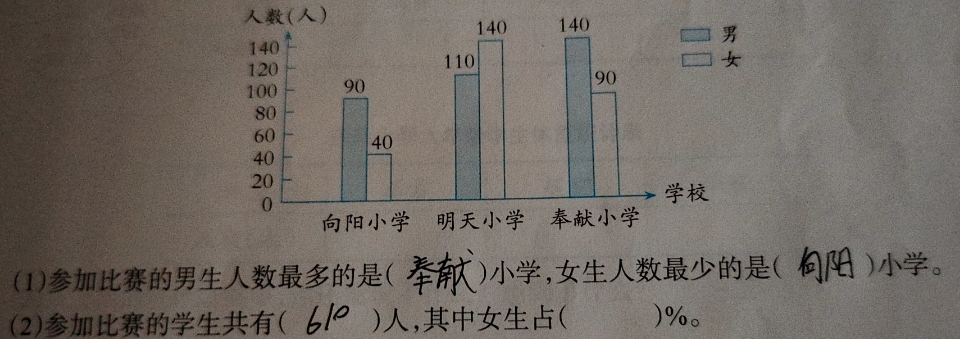 人数(人)
140
120
100
80
60
40
20
0
90
40
110
140
140
90
男
女
向阳小学 明天小学 奉献小学
学校
(1)参加比赛的男生人数最多的是( 奉献 )小学,女生人数最少的是( 向阳 )小学。
(2)参加比赛的学生共有( 610 )人,其中女生占( )%。